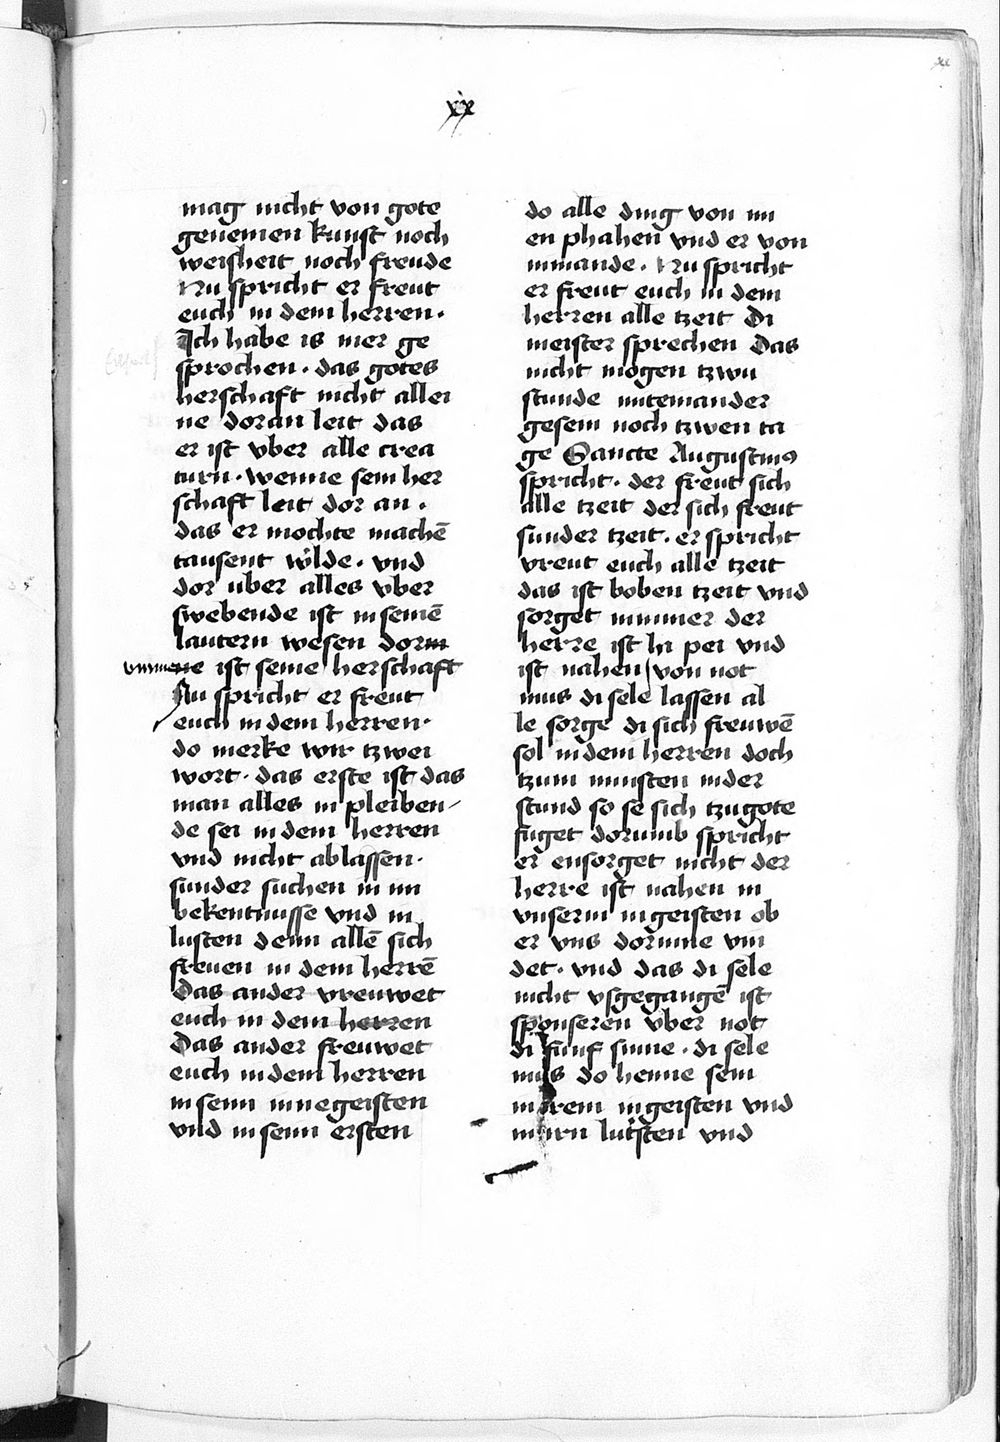 xx
xx
mag nicht von gote
genemen kunst noch
weisheit noch freude
Nu spricht er freut
euch in dem herren.
Ich habe is mer ge
sprochen. das gotes
herschaft nicht allei
ne doran leit das
er ist vber alle crea
turn. wenne sein her
schaft leit dor an.
das er mochte machē
tausent w̓lde. vnd
dor uber alles vber
swebende ist in seinē
lautern wesen dorin
ist seine herschaft
Nu spricht er freut
euch in dem herren.
do merke wir tzwei
wort. das erste ist das
man alles in pleiben-
de sei in dem herren
vnd nicht ablassen.
sunder suchen in im
bekentnusse vnd in
lusten denn allē sich
freuen in dem herrē
Das ander vreuwet
euch in dem herren
Das ander freuwet
euch in dem herren
in senn innegeisten
vnd in senn ersten
do alle ding von im
en phahen vnd er von
nimande. Nu spricht
er freut euch in dem
herren alle tzeit Di
meister sprechen Das
nicht mogen tzwu
stunde miteinander
gesein noch tzwen ta
ge Sancte Augustinus
spricht. der freut sich
alle tzeit der sich freut
sunder tzeit. er spricht
vreut euch alle tzeit
das ist boben tzeit vnd
sorget nimmer der
herre ist hi pei vnd
ist nahen von not
mus di sele lassen al
le sorge di sich freuwē
sol in dem herren doch
tzum minsten in der
stund so se sich tzu gote
fuget dorumb spricht
er ensorget nicht der
herre ist nahen in
vnserm ingeisten ob
er vns dorinne vin
det. vnd das di sele
nicht vsgegangē ist
sponseren vber not
di funf sinne. di sele
mus do heime sein
in irem ingeisten vnd
in irn lutsten vnd